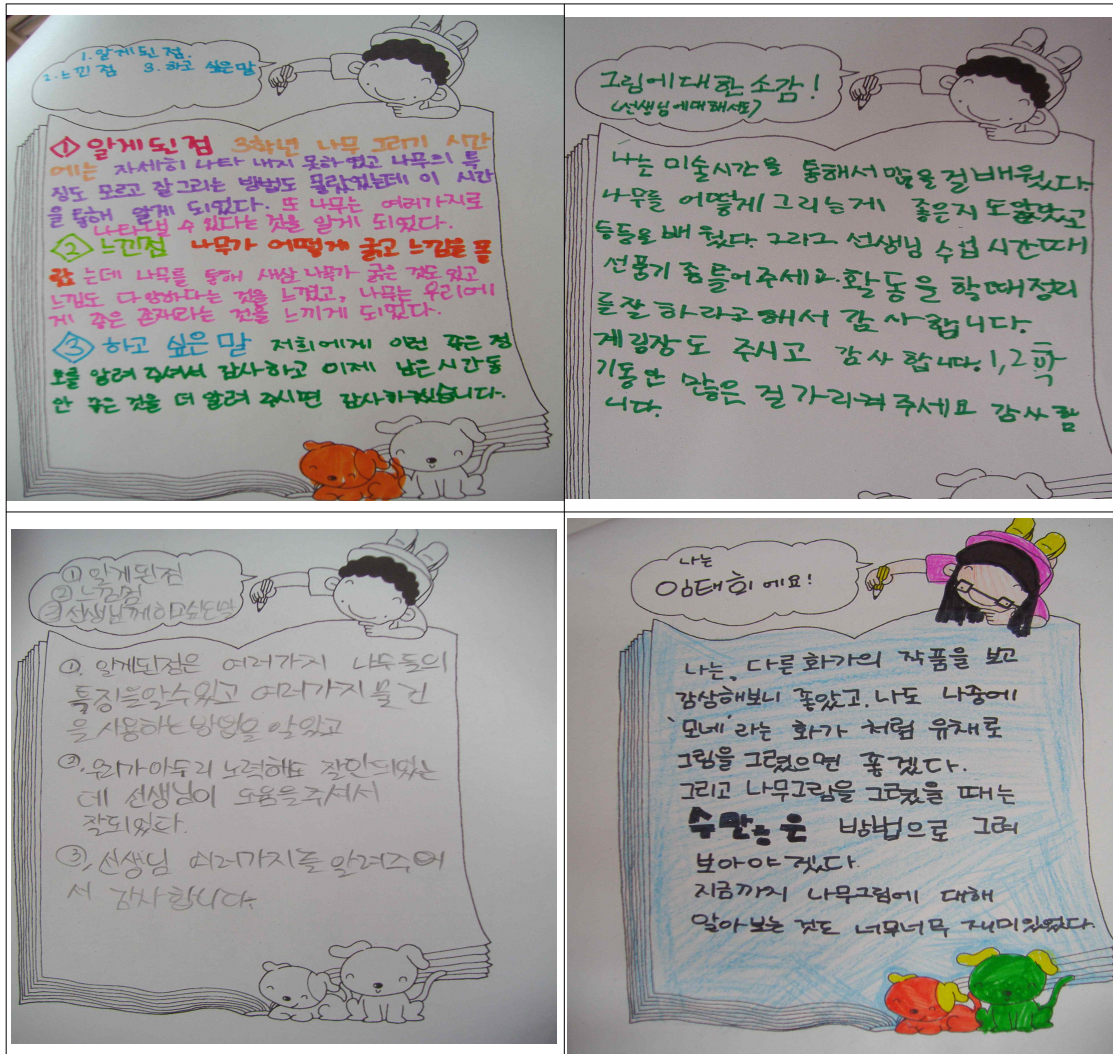 1. 알게 된 점.
2. 느낀 점 3. 하고 싶은 말
① 알게 된 점 3학년 나무 그리기 시간
에는 자세히 나타 내지 못하였고 나무의 특
징도 모르고 잘 그리는 방법도 몰랐었는데 이 시간
을 통해 알게 되었다. 또 나무는 여러가지로
나타낼 수 있다는 것을 알게 되었다.
② 느낀점 나무가 어떻게 굵고 느낌을 몰
랐는데 나무를 통해 새삼 나무가 굵은 것도 있고
느낌도 다양하다는 것을 느꼈고, 나무는 우리에
게 좋은 존재라는 것을 느끼게 되었다.
③ 하고 싶은 말 저희에게 이런 좋은 정
보를 알려 주셔서 감사하고 이제 남은 시간 동
안 좋은 것을 더 알려 주시면 감사하겠습니다.
그림에 대한 소감!
(선생님에 대해서도)
나는 미술시간을 통해서 많을 걸 배웠다.
나무를 어떻게 그리는게 좋은지도 알았고
등등을 배웠다. 그리고 선생님 수업 시간때
선풍기 좀 틀어주세요. 활동을 할때 정리
를 잘 하라고 해서 감사합니다.
계림장도 주시고 감사합니다. 1, 2학
기동안 많은 걸 가리켜 주세요 감사합
니다.
① 알게된점
② 느낀점
③ 선생님께 하고싶은말
①. 알게된점은 여러가지 나무들의
특징을알수있고 여러가지물건
을 사용하는 방법을 알았고
②. 우리가 아무리 노력해도 잘안되었는
데 선생님이 도움을 주셔서
잘되었다.
③. 선생님 여러가지를 알려주어
서 감사합니다.
나는
임태희에요!
나는, 다른 화가의 작품을 보고
감상해보니 좋았고, 나도 나중에
'모네'라는 화가 처럼 유채로
그림을 그렸으면 좋겠다.
그리고 나무그림을 그렸을 때는
수많은 방법으로 그려
보아야 겠다.
지금까지 나무그림에 대해
알아보는 것도 너무너무 재미있었다.